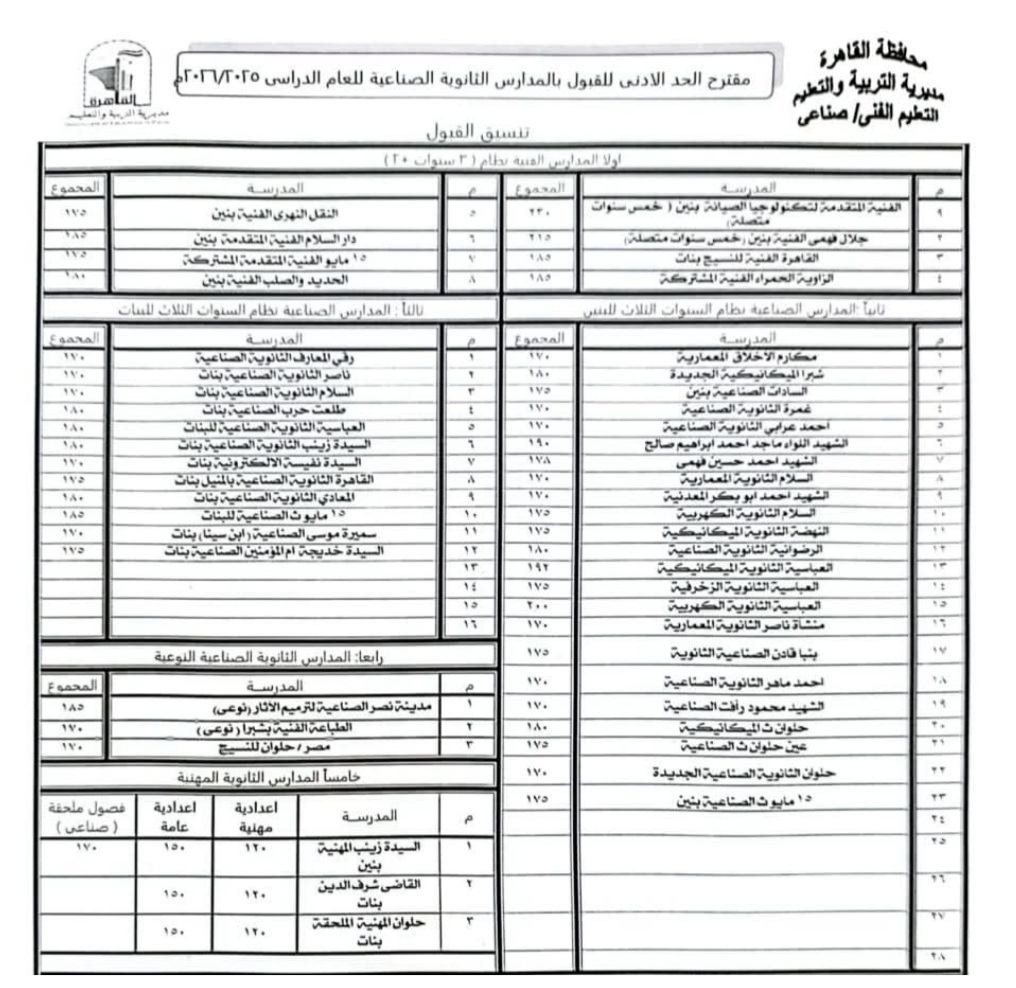 محافظة القاهرة
مديرية التربية والتعليم
التعليم الفنى/ صناعى
مقترح الحد الادنى للقبول بالمدارس الثانوية الصناعية للعام الدراسى ٢٠٢٦/٢٠٢٥م
القاهرة
مديرية التربية والتعليم
تنسيق القبول
اولا المدارس الفنية نظام ( ٣ سنوات +٢ )
م المدرســة المجموع م المدرســة المجموع
٩ الفنية المتقدمة لتكنولوجيا الصيانة بنين ( خمس سنوات متصلة) ٢٣٠ ٥ النقل النهرى الفنية بنين ١٧٥
٢ جلال فهمى الفنية بنين (خمس سنوات متصلة) ٢١٥ ٦ دار السلام الفنية المتقدمة بنين ١٨٥
٣ القاهرة الفنية للنسيج بنات ١٨٥ ٧ ١٥ مايو الفنية المتقدمة المشتركة ١٧٥
٤ الزاوية الحمراء الفنية المشتركة ١٨٥ ٨ الحديد والصلب الفنية بنين ١٨٠
ثانياً :المدارس الصناعية بنظام السنوات الثلاث للبنين
م المدرســة المجموع
١ مكارم الاخلاق المعمارية ١٧٠
٢ شبرا الميكانيكية الجديدة ١٨٠
٣ السادات الصناعية بنين ١٧٥
٤ غمرة الثانوية الصناعية ١٧٠
٥ احمد عرابي الثانوية الصناعية ١٧٠
٦ الشهيد اللواء ماجد احمد ابراهيم صالح ١٩٠
٧ الشهيد احمد حسين فهمى ١٧٨
٨ السلام الثانوية المعمارية ١٧٠
٩ الشهيد احمد ابو بكر المعدنية ١٧٠
١٠ السلام الثانوية الكهربية ١٧٥
١١ النهضة الثانوية الميكانيكية ١٧٥
١٢ الرضوانية الثانوية الصناعية ١٨٠
١٣ العباسية الثانوية الميكانيكية ١٩٢
١٤ العباسية الثانوية الزخرفية ١٧٥
١٥ العباسية الثانوية الكهربية ٢٠٠
١٦ منشاة ناصر الثانوية المعمارية ١٧٠
١٧ بنبا قادن الصناعية الثانوية ١٧٥
١٨ احمد ماهر الثانوية الصناعية ١٧٠
١٩ الشهيد محمود رأفت الصناعية ١٧٠
٢٠ حلوان ث الميكانيكية ١٨٠
٢١ عين حلوان ث الصناعية ١٧٥
٢٢ حلوان الثانوية الصناعية الجديدة ١٧٠
٢٣ ١٥ مايو ث الصناعية بنين ١٧٥
٢٤
٢٥
٢٦
٢٧
٢٨
ثالثاً : المدارس الصناعية نظام السنوات الثلاث للبنات
م المدرســة المجموع
١ رقي المعارف الثانوية الصناعية ١٧٠
٢ ناصر الثانوية الصناعية بنات ١٧٠
٣ السلام الثانوية الصناعية بنات ١٧٠
٤ طلعت حرب الصناعية بنات ١٨٠
٥ العباسية الثانوية الصناعية للبنات ١٨٠
٦ السيدة زينب الثانوية الصناعية بنات ١٨٠
٧ السيدة نفيسة الالكترونية بنات ١٧٠
٨ القاهرة الثانوية الصناعية بالمنيل بنات ١٧٥
٩ المعادي الثانوية الصناعية بنات ١٨٠
١٠ ١٥ مايو ث الصناعية للبنات ١٨٥
١١ سميرة موسى الصناعية (ابن سينا) بنات ١٧٠
١٢ السيدة خديجة ام المؤمنين الصناعية بنات ١٧٥
١٣
١٤
١٥
١٦
رابعا: المدارس الثانوية الصناعية النوعية
م المدرســة المجموع
١ مدينة نصر الصناعية لترميم الاثار (نوعى) ١٨٥
٢ الطباعة الفنية بشبرا ( نوعى ) ١٧٠
٣ مصر / حلوان للنسيج ١٧٠
خامساً المدارس الثانوية المهنية
م المدرســة اعدادية مهنية اعدادية عامة فصول ملحقة ( صناعى )
١ السيدة زينب المهنية بنين ١٢٠ ١٥٠ ١٧٠
٢ القاضى شرف الدين بنات ١٢٠ ١٥٠
٣ حلوان المهنية الملحقة بنات ١٢٠ ١٥٠